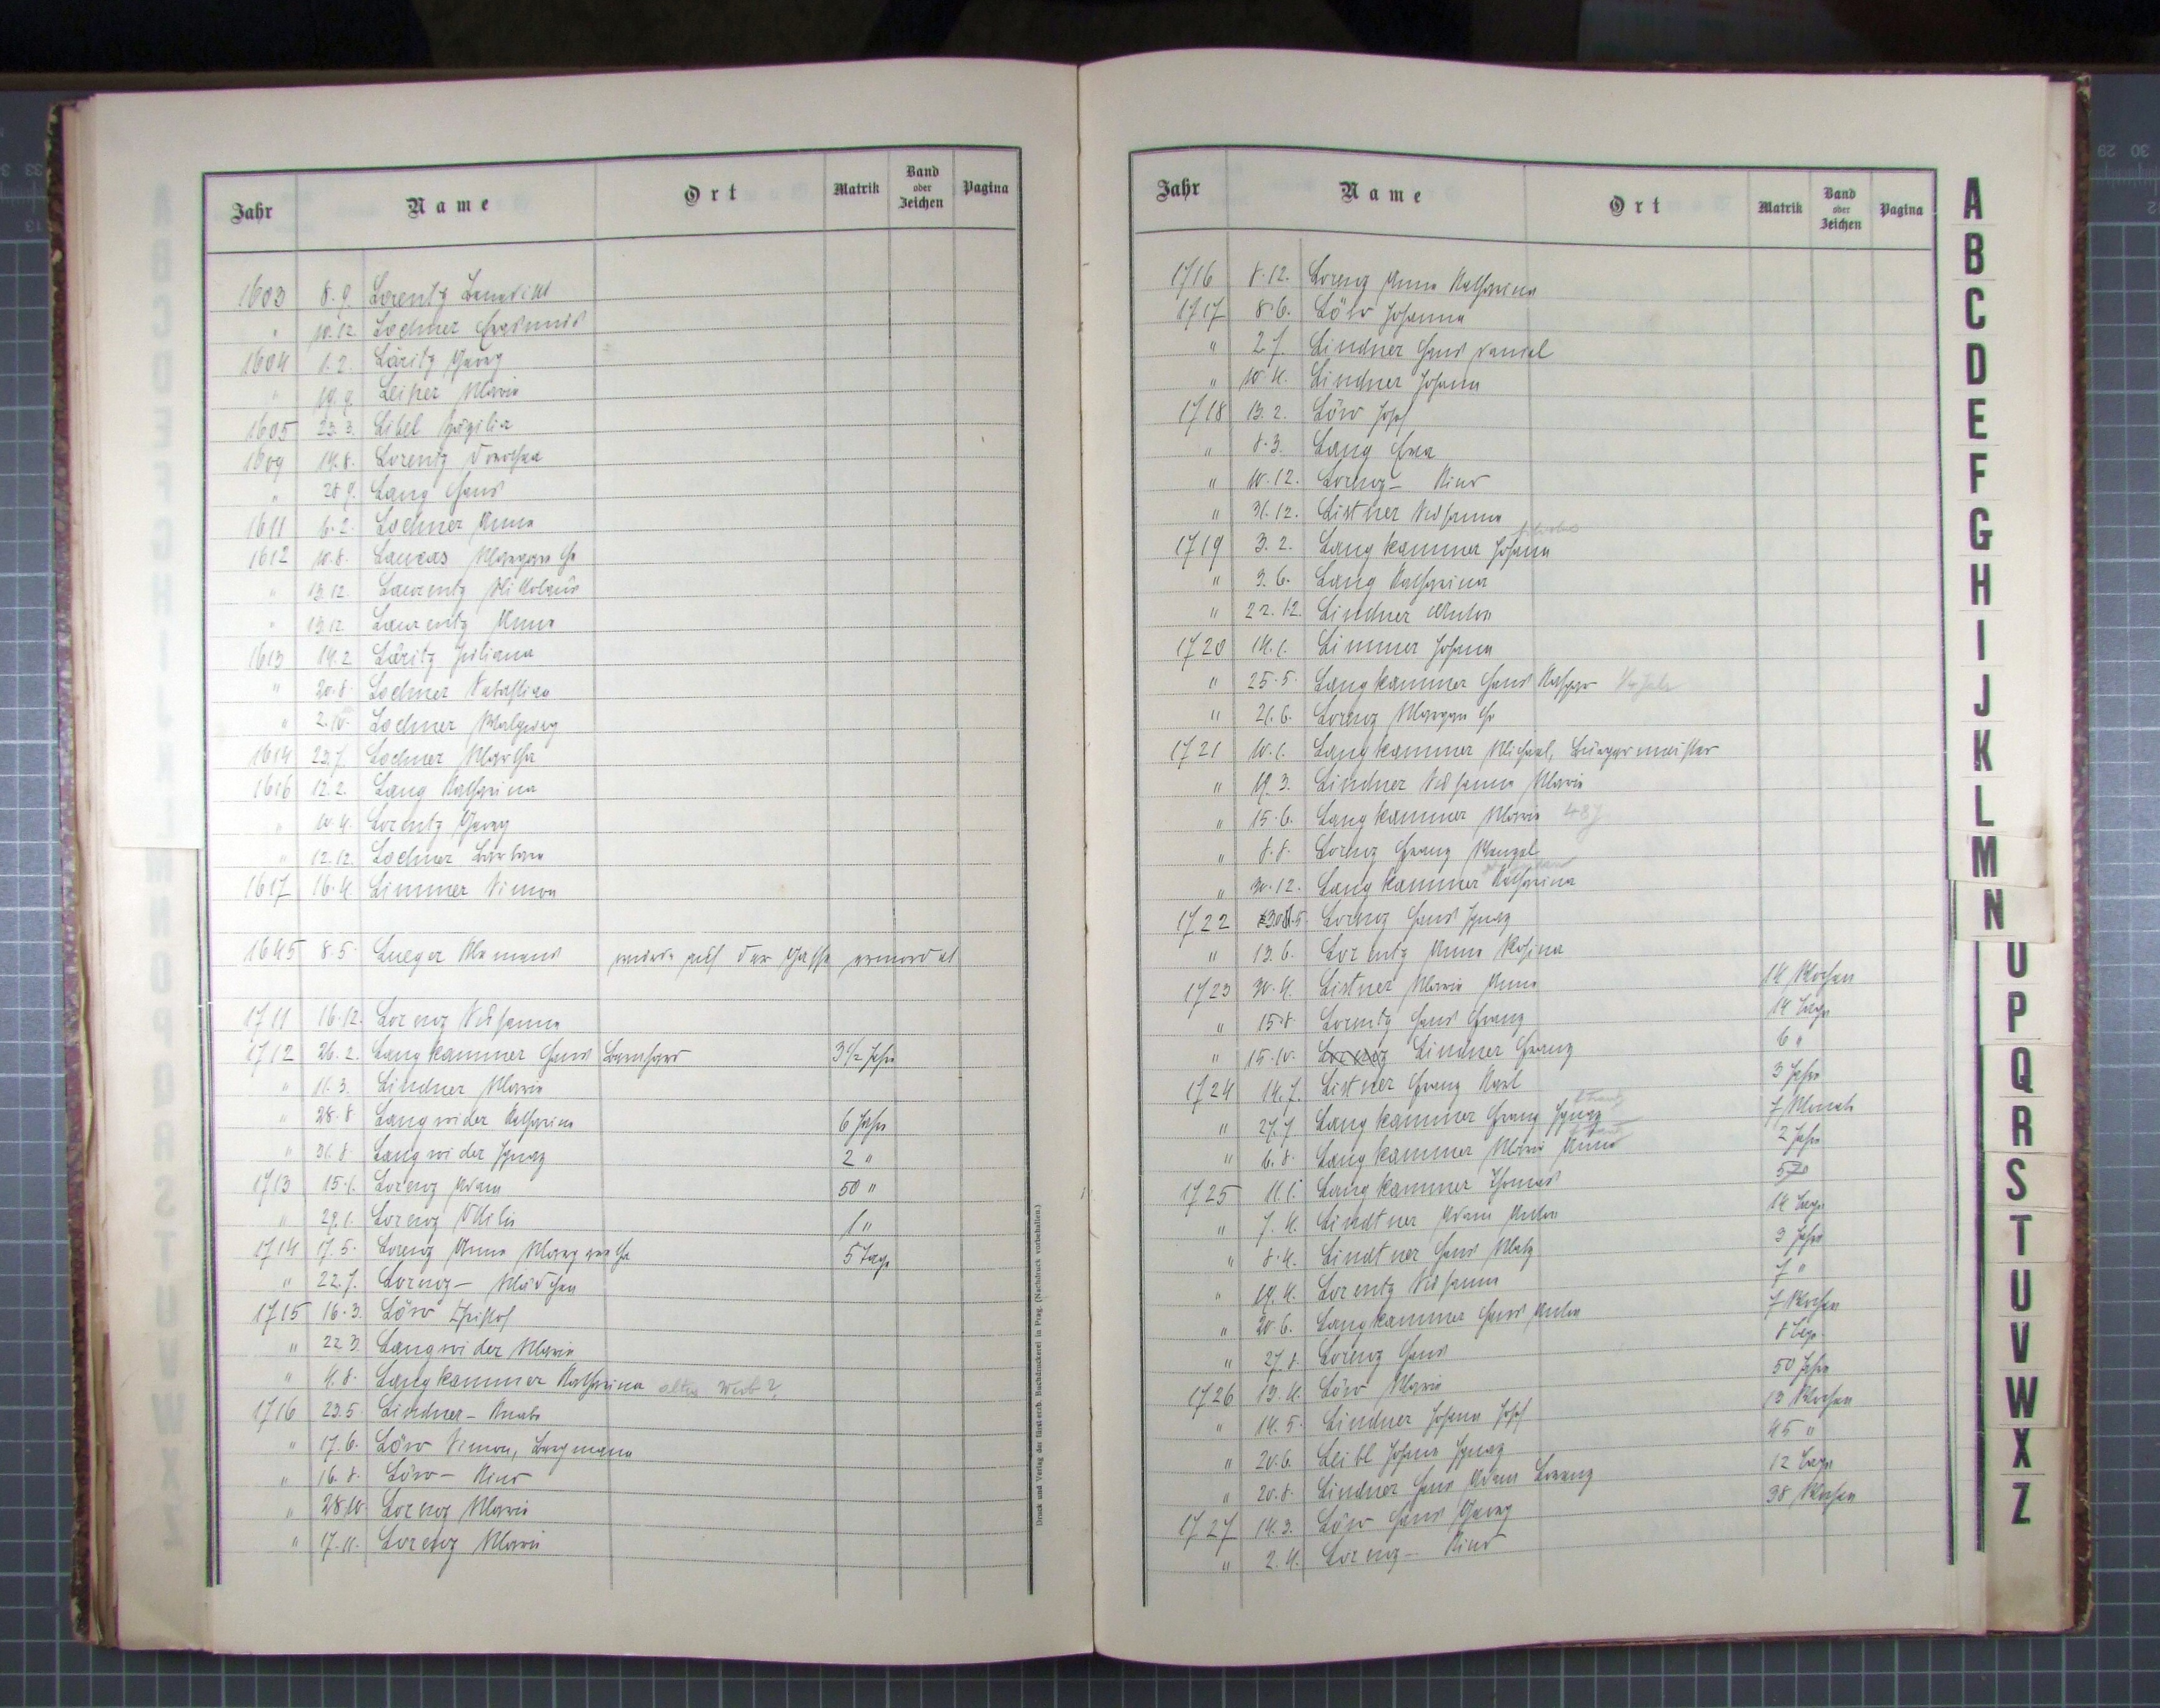 Jahr Name Ort Matrik Band oder Zeichen Pagina
1603 8.9. Lorentz Benedikt
" 10.12. Lochner Erasmus
1604 1.2. Läritz Georg
" 19.9. Leiper Maria
1605 23.3. Libel Cäzilia
1609 14.8. Lorentz Dorothea
" 28.9. Lang Hans
1611 6.2. Lochner Anna
1612 10.8. Laucas Margaretha
" 13.12. Laurentz Nikolaus
" 13.12. Laurentz Anna
1613 14.2. Läritz Juliana
" 20.8. Lochner Sebastian
" 2.10. Lochner Walburg
1614 23.7. Lochner Martha
1616 12.2. Lang Katharina
" 10.4. Lorentz Georg
" 12.12. Lochner Barbara
1617 16.4. Limmer Simon
1645 8.5. Lueger Klemens wurde auf der Gasse ermordet
1711 16.12. Lorenz Susanna
1712 26.2. Langkammer Hans Bernhard 3 1/2 Jahr
" 11.3. Lindner Maria
" 28.8. Langwider Katharina 6 Jahr
" 31.8. Langwider Ignaz 2 "
1713 15.1. Lorenz Adam 50 "
" 29.1. Lorenz Ottilia 1 "
1714 17.5. Lorenz Anna Margaretha 5 Tage
" 22.7. Lorenz - Mädchen
1715 16.3. Löw Christof
" 22.3. Langwider Maria
" 4.8. Langkammer Katharina altes Weib?
1716 23.5. Lindner - Knabe
" 17.6. Löw Simon, Bergmann
" 16.8. Löw - Kind
" 28.10. Lorenz Maria
" 17.11. Lorenz Maria
Druck und Verlag der fürsterzb. Buchdruckerei in Prag. (Nachdruck vorbehalten.)
Jahr Name Ort Matrik Band oder Zeichen Pagina
1716 8.12. Lorenz Anna Katharina
1717 8.6. Löw Johanna
" 2.7. Lindner Hans Daniel
" 10.4. Lindner Johann
1718 13.2. Löw Josef
" 8.3. Lang Eva
" 10.12. Lorenz - Kind
" 31.12. Listner Susanna
1719 3.2. Langkammer Johann
" 3.6. Lang Katharina
" 22.12. Lindner Anton
1720 14.1. Limmer Johann
" 25.5. Langkammer Hans Kaspar 1/4 Jahr
" 21.6. Lorenz Margaretha
1721 10.1. Langkammer Michael, Bürgermeister
" 19.3. Lindner Susanna Maria
" 15.6. Langkammer Maria 48 J
" 8.8. Lorenz Franz Wenzel
" 30.12. Langkammer Katharina
1722 30.5. Lorenz Hans Ignaz
" 13.6. Lorentz Anna Rosina
1723 30.4. Listner Maria Anna 14 Wochen
" 15.8. Lorentz Hans Franz 14 Tage
" 15.10. Lorenz Lindner Franz 6 "
1724 14.7. Listner Franz Karl 3 Jahr
" 27.7. Langkammer Franz Ignaz 7 Monate
" 6.8. Langkammer Maria Anna 2 Jahr
1725 11.1. Langkammer Thomas 52
" 7.4. Lindtner Adam Anton 14 Tage
" 8.4. Lindtner Hans Matz 3 Jahr
" 19.4. Lorentz Susanna 7 "
" 20.6. Langkammer Hans Anton 7 Wochen
" 27.8. Lorenz Hans 8 Tage
1726 13.4. Löw Maria 50 Jahr
" 14.5. Lindner Johann Josef 13 Wochen
" 20.6. Leibl Johann Ignaz 45 "
" 20.8. Lindner Hans Adam Lorenz 12 Tage
1727 14.3. Löw Hans Georg 38 Wochen
" 2.4. Lorenz - Kind
A
B
C
D
E
F
G
H
I
J
K
L
M
N
O
P
Q
R
S
T
U
V
W
X
Z